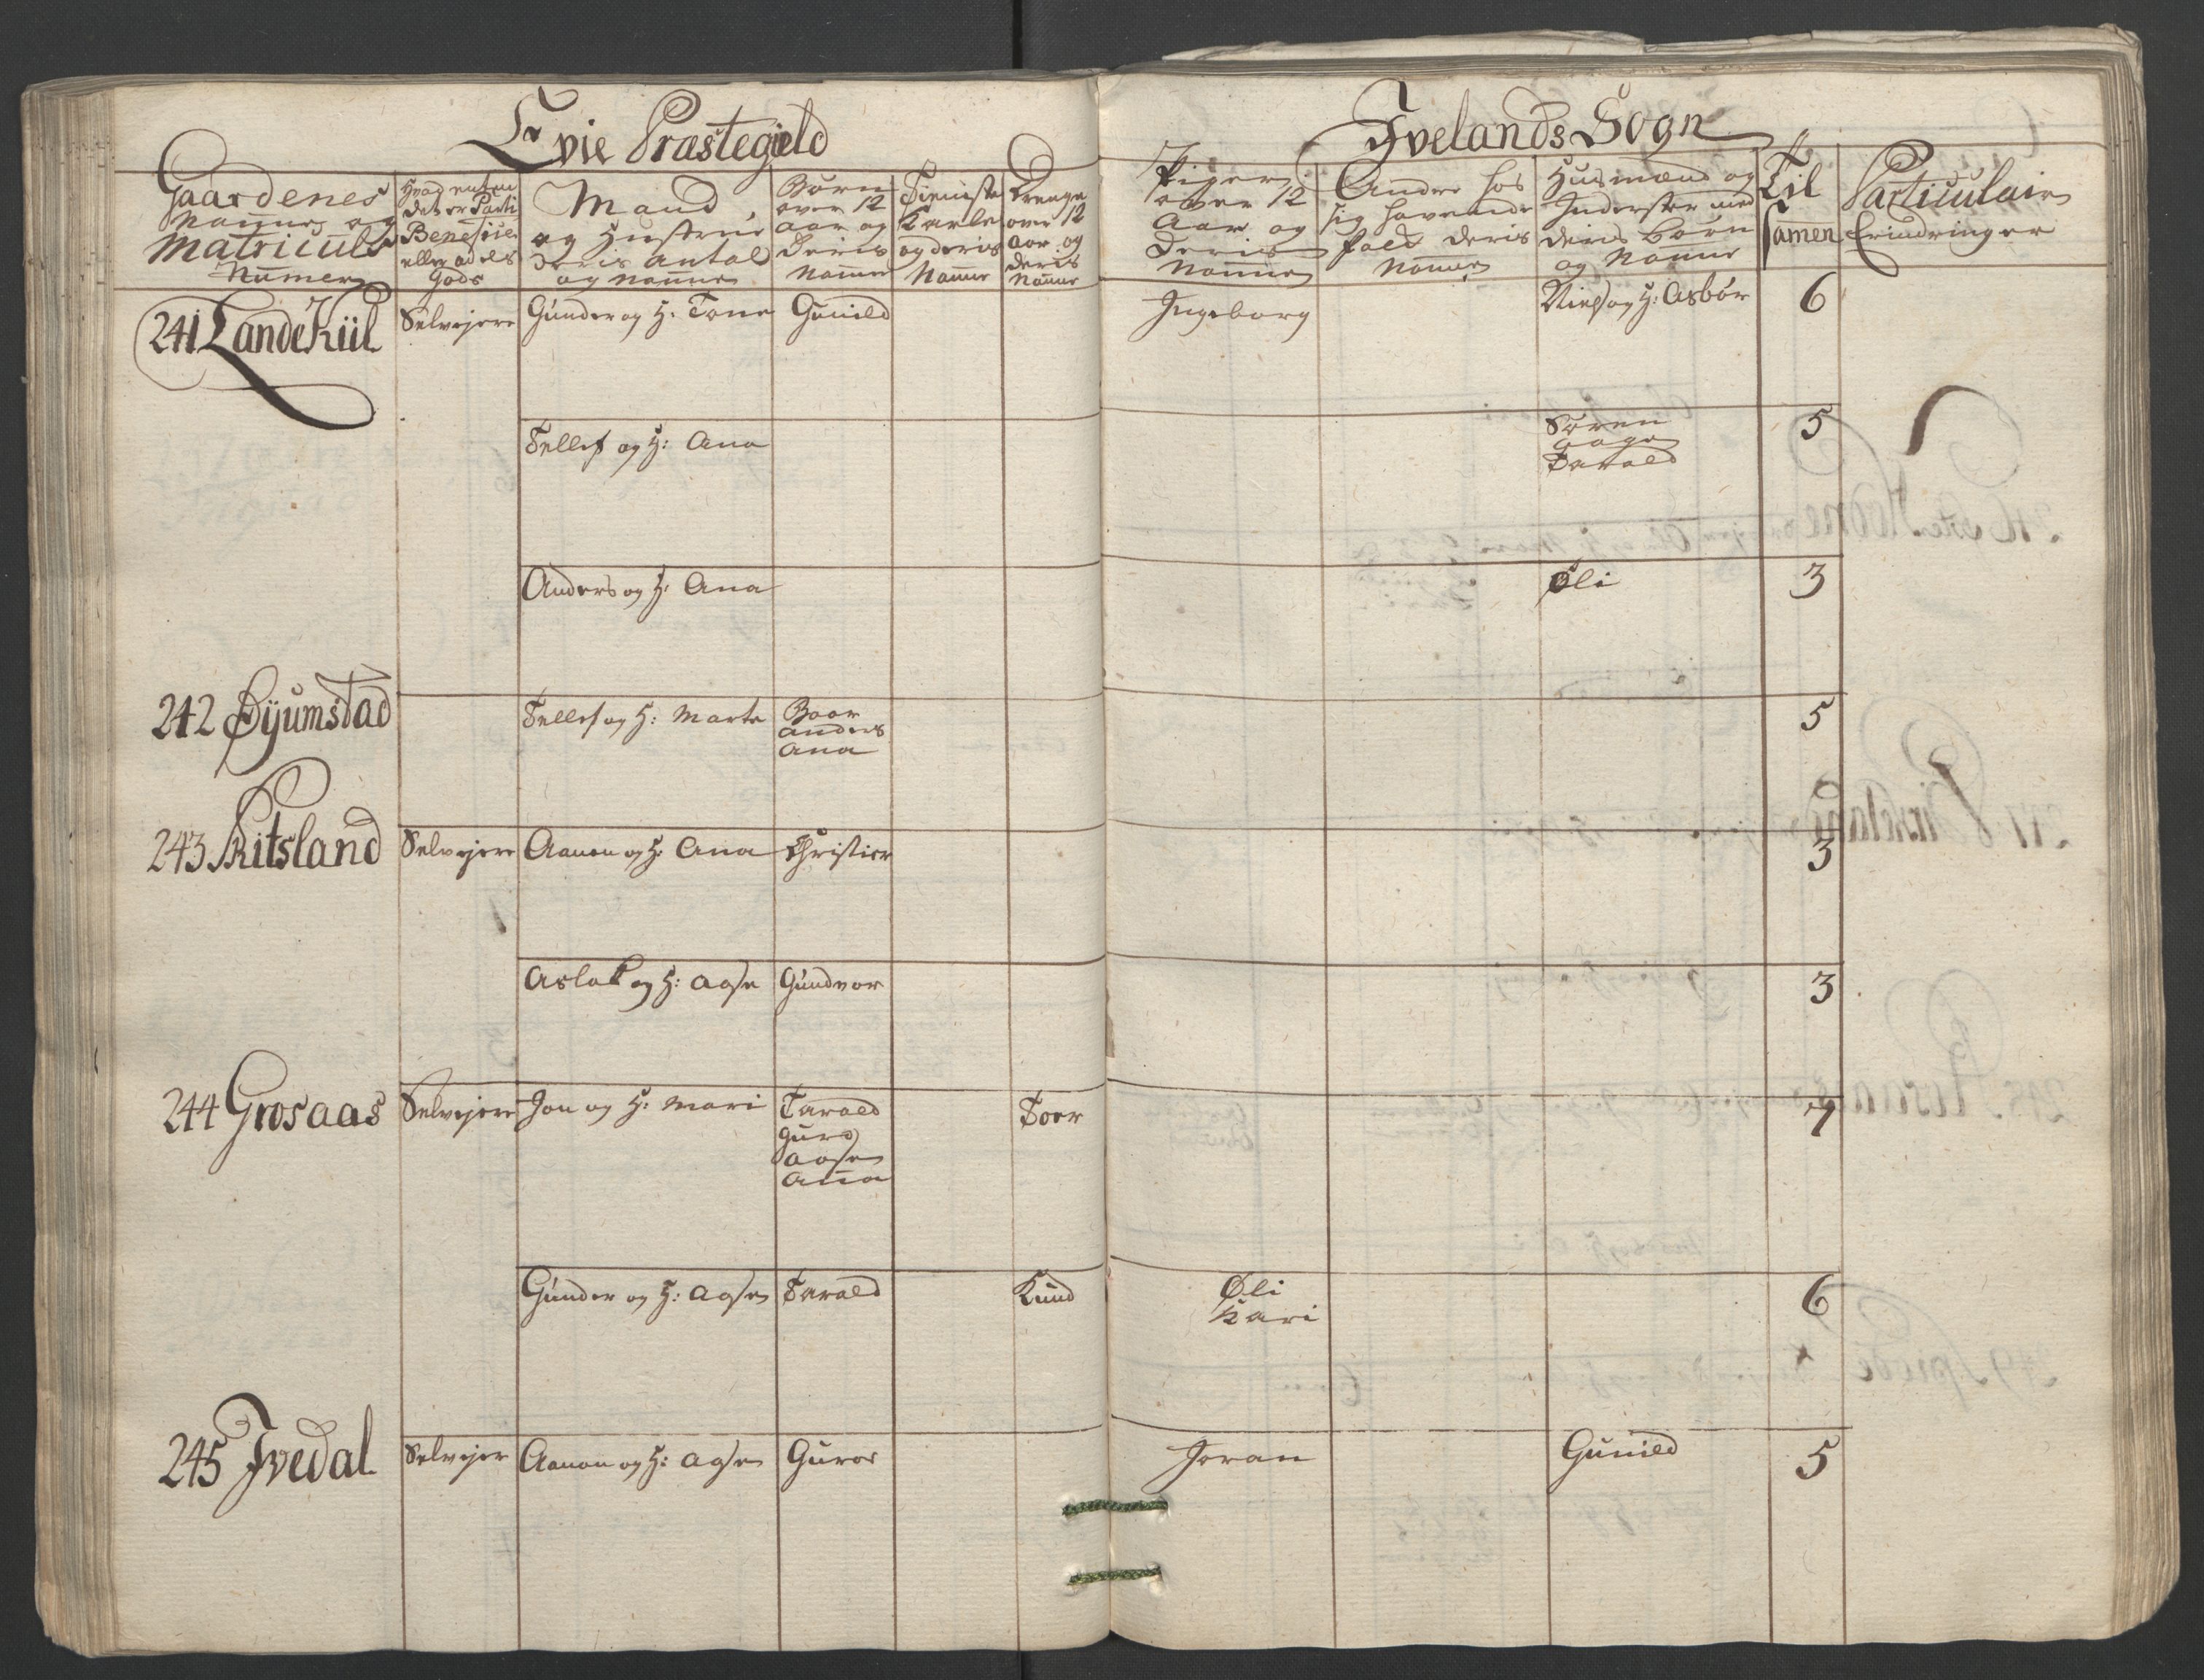 Evie Præstegield
Ivelands Sogn
Gaardenes
Nafne og
Matriculs
Numer
Hvad enten
det er Parti
Beneficie
eller adels
Gods
Mand,
og Hustrue
deris antal
og nafne
Børn
over 12
aar og
Deris
Nafne
Tieniste
Karle
og deris
Nafne
Drenge
over 12
aar og
deris
Nafne
Piger
over 12
Aar og
Deris
Nafne
Andre hos
sig havende
folk deris
Nafne
Husmænd og
Inderster med
deris Børn
og Nafne
Til
samen
Particulaire
Erindringer
241 Landekiil Selvejere Gunder og H: Tone Gunild Ingeborg Niels og H: Asbør 6
Tellef og H: Ana Søren 5
Aage
Tarald
Anders og H: Ana Øli 3
242 Øyumstad Tellef og H: Marte Baar 5
anders
Ana
243 Skitsland Selvejere Aanon og H: Ana Christier 3
Aslak og H: Aase Gundvor 3
244 Grosaas Selvejere Jon og H: Mari Tarald Toer 7
Guro
Aase
Anna
Gunder og H: Aase Tarald Knud Øli 6
Kari
245 Ivedal Selvejer Aanon og H: Aase Guroe Joran Gunild 5